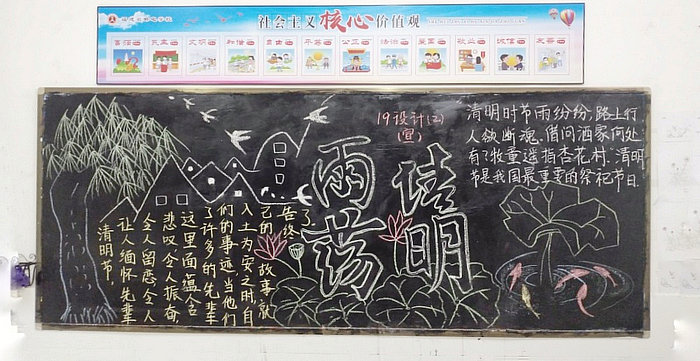 社会主义核心价值观
富强 民主 文明 和谐 自由 平等 公正 法治 爱国 敬业 诚信 友善
19设计(2)
(宣)
清明
雨荡
清明时节雨纷纷,路上行
人欲断魂。借问酒家何处
有?牧童遥指杏花村。清明
节是我国最重要的祭祀节日.
清明节,
让人缅怀先辈
令人留恋,令人
悲叹令人振奋,
这里面蕴含
了许多的先辈
们的事迹,当他们
入土为安之时,自
己的故事就
告终
了